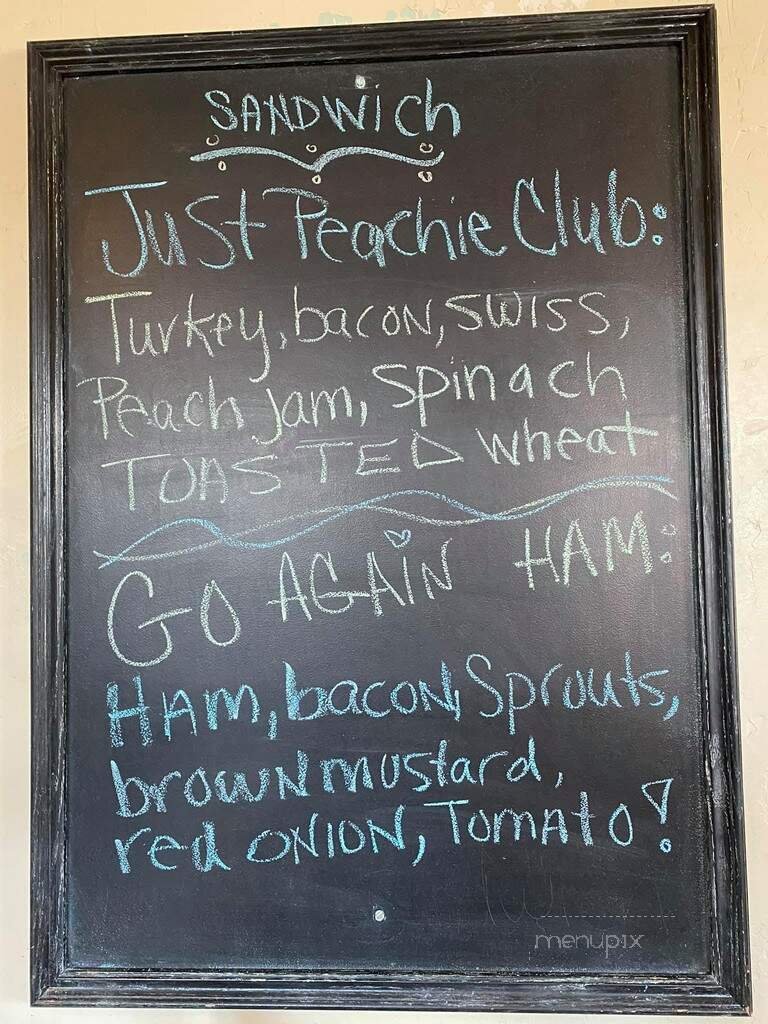 SANDWich
Just Peachie Club:
Turkey, bacon, swiss,
Peach jam, spinach
TOASTED wheat
GO AGAIN HAM:
HAm, bacon, Sprouts,
brown mustard,
red ONION, Tomato!
menupix